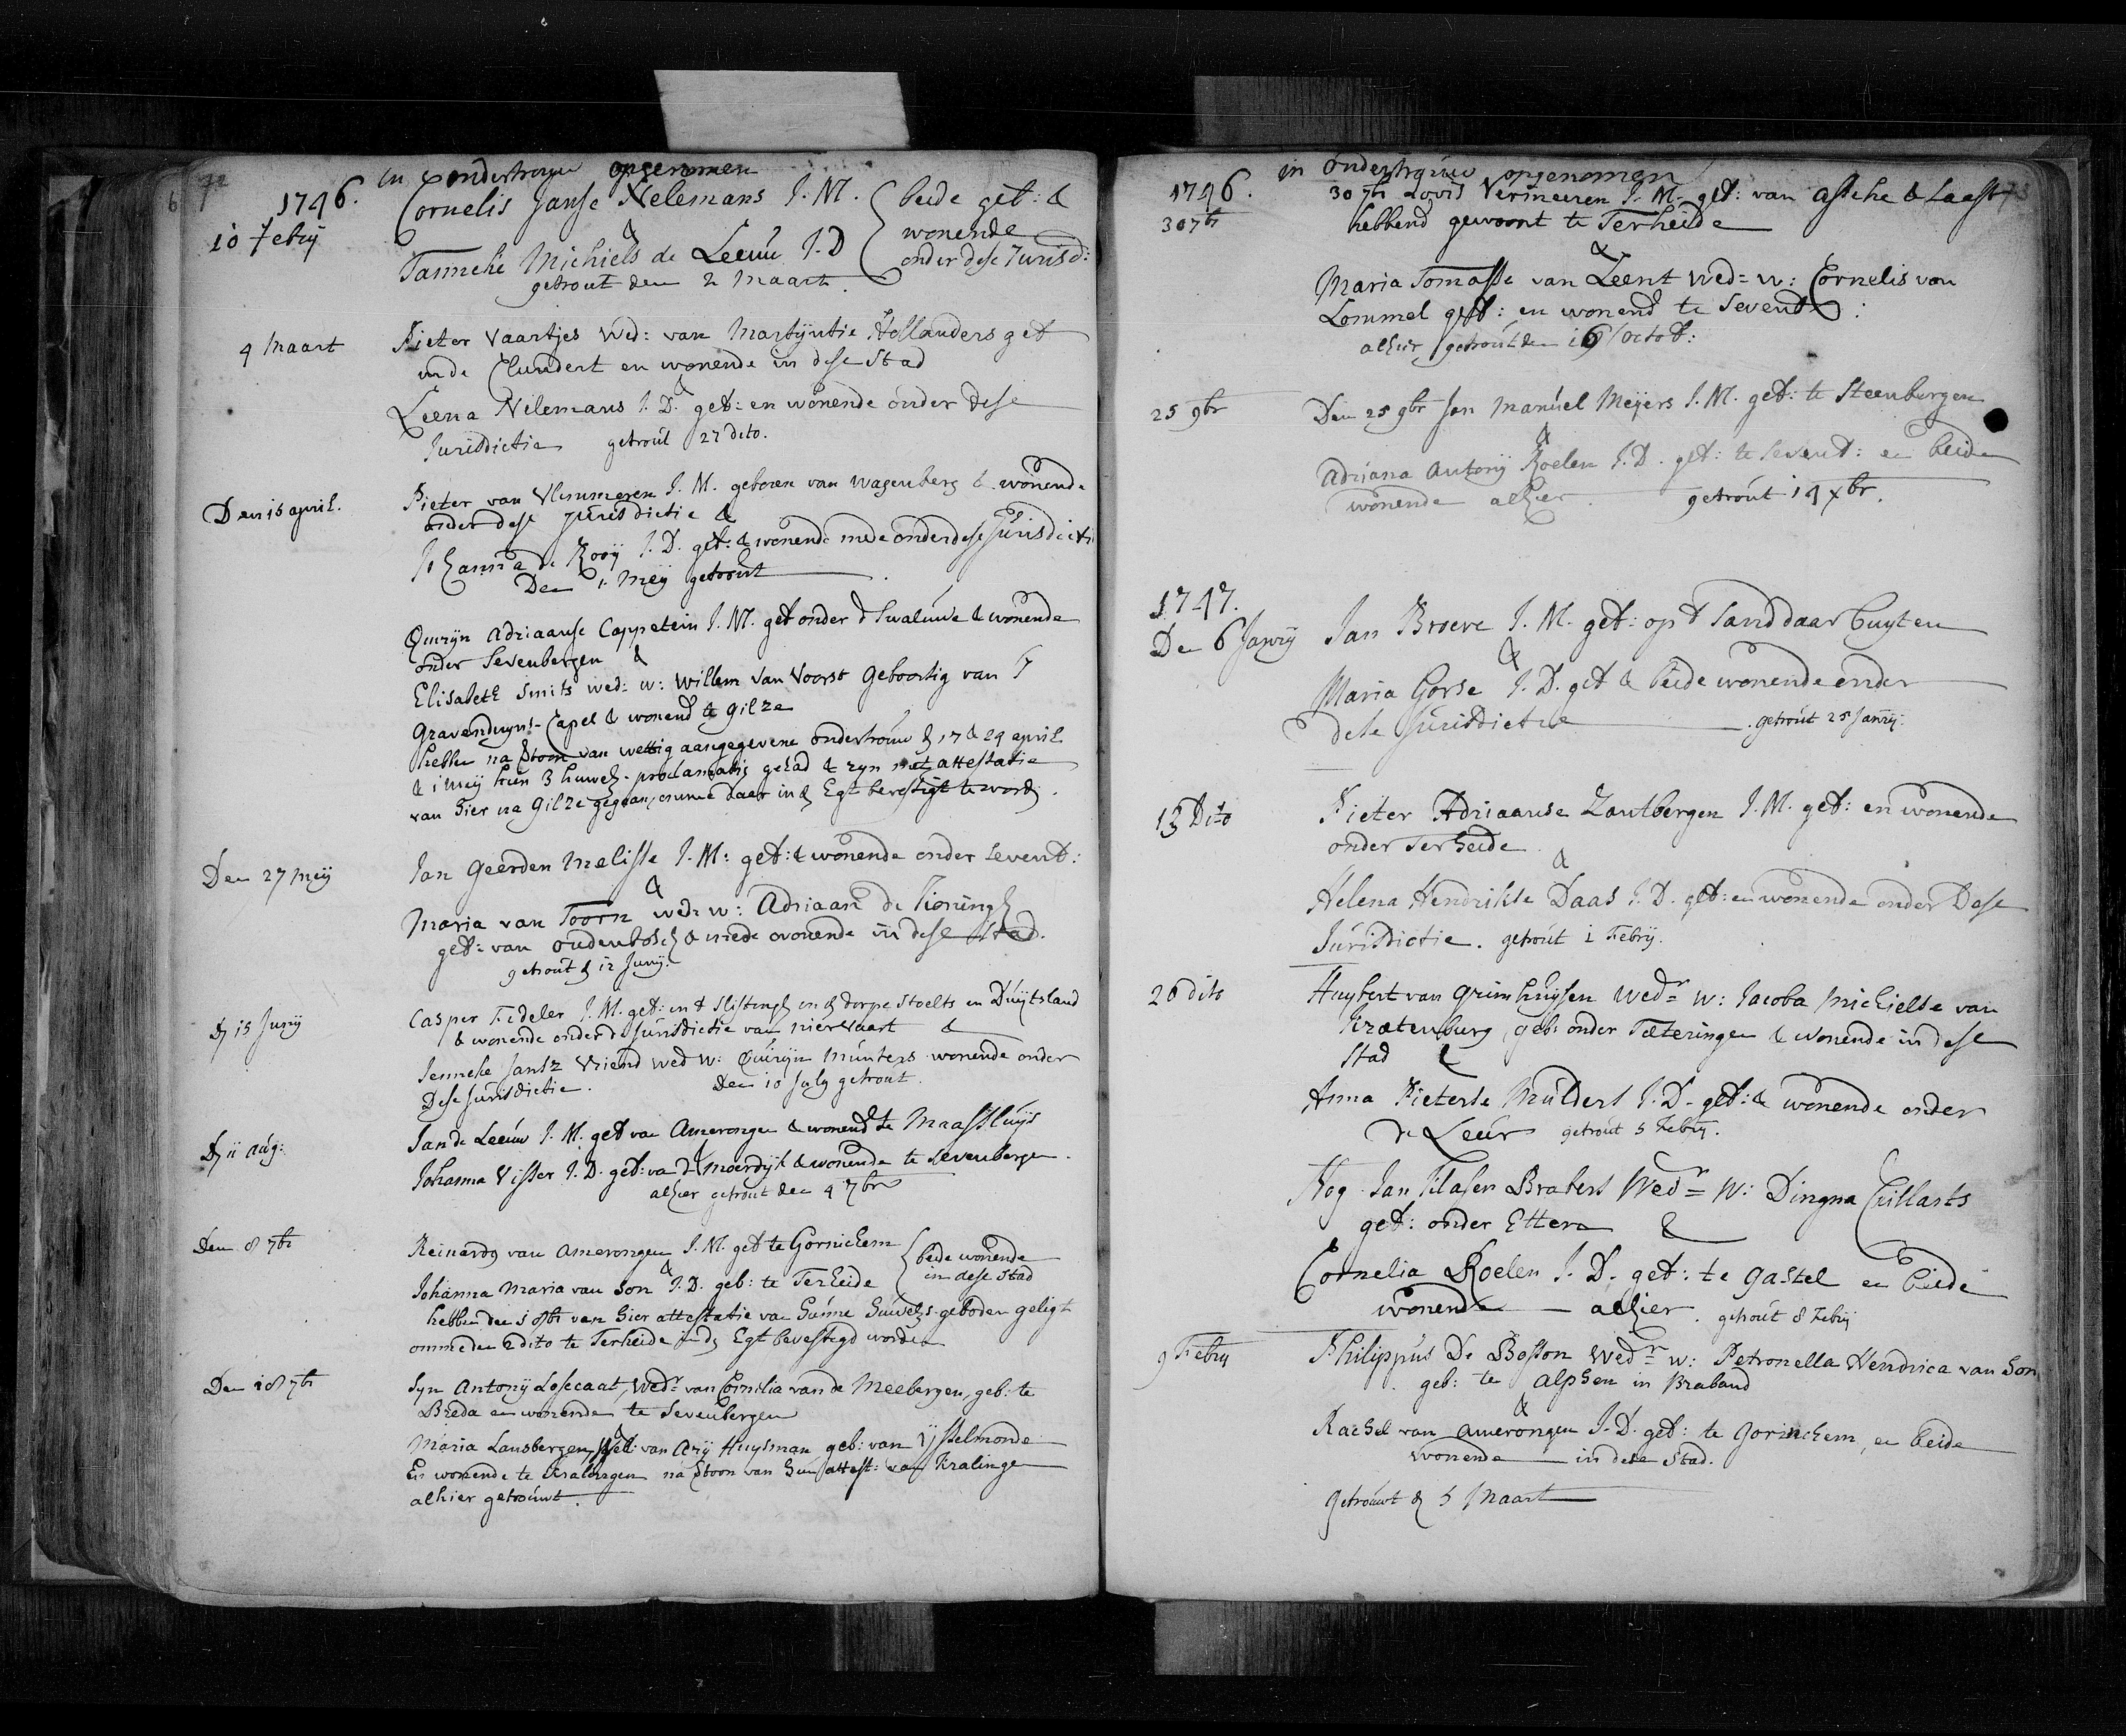 72
in ondertrouw opgenomen
1746.
10 Febrij
Cornelis Janse Nelemans J. M. beide geb: &
&
wonende
Tanneke Michiels de Leeuw J. D onder dese Jurisd:
getrout den 2 Maart.
4 Maart
Pieter Vaartjes Wed: van Martijntie Hollanders geb
in de Clundert en wonende in dese Stad
&
Leena Nelemans J. D. geb: en wonende onder dese
Jurisdictie getrout 27 dito.
Den 16 april.
Pieter van Vlimmeren J. M. geboren van Wagenberg & wonende
onder dese Jurisdictie &
Johanna de Rooij J. D. geb: & wonende mede onder dese Jurisdictie
Den 1 Meij getrout
Quirijn Adriaanse Cappetein J. M. geb onder d Swaluwe & wonende
onder Sevenbergen &
Elisabeth Smits wed: w: Willem van Voorst Geboortig van
Gravenduyns-Capel & wonend te Gilze
hebben na thoon van wettig aangegevene ondertrouw d 17 & 24 april
& 1 meij hun 3 huwel. proclamatis gehad & zyn met attestatie
van hier na Gilze gegaan, omme daar in d Egt bevestigt te word.
Den 27 Meij
Jan Geerden Melisse J. M: geb: & wonende onder Sevenb:
&
Maria van Toorn wed: w: Adriaan de Koningh
geb: van oudenbosch & mede wonende in dese Stad.
getrout d 12 Junij.
D 15 Junij
Casper Fedeler J. M. geb: in t Stift en d dorpe Stoelts in Duijtsland
& wonende onder de Jurisdictie van niervaart &
Jenneke Jansz Vriend wed w: Quirijn Munters wonende onder
Dese Jurisdictie. Den 10 July getrout.
D 11 aug:
Jan de Leeuw J. M. geb van Amerongen & wonend te Maassluijs
&
Johanna Visser J. D. geb: van d Moerdijk & wonende te Sevenbergen.
alhier getrout den 4 7br
Den 8 7br
Reinardus van Amerongen J. M. geb te Gornichem beide wonende
&
in dese Stad
Johanna Maria van Son J. D. geb: te Terheide
hebben den 1 8br van hier attestatie van hunne huwelijks geboden geligt
omme den 2 dito te Terheide in d Egt bevestigd worden
Den 18 7br
Syn Antonij Losecaat, Wedr van Cornelia van de Meebergen, geb: te
Breda en wonende te Sevenbergen
&
Maria Lansbergen, Wed: van Arij Huysman geb: van IJsselmonde
En wonende te Kralingen na thoon van hun attest: van Kralinge
alhier getrouwt.
73
in ondertrouw opgenomen
1746.
30 7br
30 7br Lovis Vermeeren J. M. geb: van Assche & Laast
hebbend gewoont te Terheide
&
Maria Tomasse van Leent Wed= w: Cornelis van
Lommel geb: en wonend te Sevenb:
alhier getrout den 16 Octob:
25 9br
Den 25 9br Jan Manuel Meijers J. M. geb: te Steenbergen
&
Adriana Antonij Roelen J. D. geb: te Sevenb: en beide
wonende alhier. getrout 14 xbr.
1747.
De 6 Janrij
Jan Broere J. M. geb: op t Sand daar buyten
&
Maria Gorse J. D. geb & beide wonende onder
dese Jurisdictie getrout 25 Janrij.
13 Dito
Pieter Adriaanse Zantbergen J. M. geb: en wonende
onder Terheide.
&
Helena Hendrikse Daas J. D. geb: en wonende onder Dese
Jurisdictie. getrout 1 Febrij.
26 dito
Huybert van Grimhuijsen Wedr= w: Jacoba Michielse van
Kratenburg, geb: onder Teteringen & wonende in dese
Stad &
Anna Pieterse Mulders J. D. geb: & wonende onder
de Leur getrout 5 Febrij.
Nog Jan Klasen Brabers Wedr= W: Dingna
geb: onder Etten &
Cornelia Roelen J. D. geb: te Gastel en beide
wonende alhier. getrout 8 Febrij
9 Febrij
Philippus De Bosson Wedr= w: Petronella Hendrica van Son
geb: te Alphen in Braband
&
Rachel van Amerongen J. D. geb: te Gorinchem, en beide
wonende in dese Stad.
Getrouwt d 5 Maart